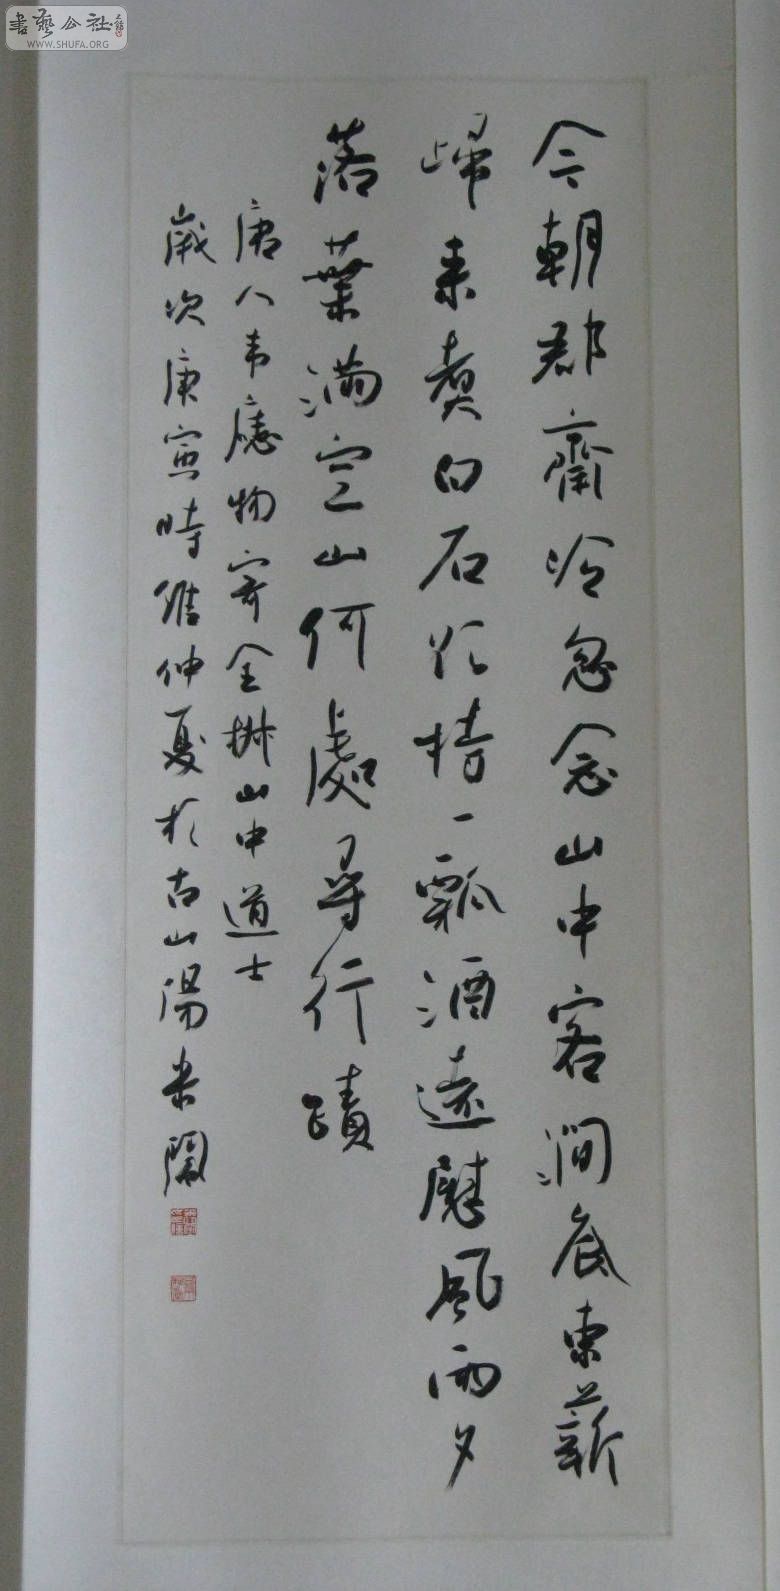 今朝郡齋冷忽念山中客澗底束薪
歸来煑白石欲持一瓢酒遠慰風雨夕
落葉滿空山何處尋行蹟
唐人韦應物寄全椒山中道士
歲次庚寅時維仲夏於古山陽米闹
書藝公社
WWW.SHUFA.ORG